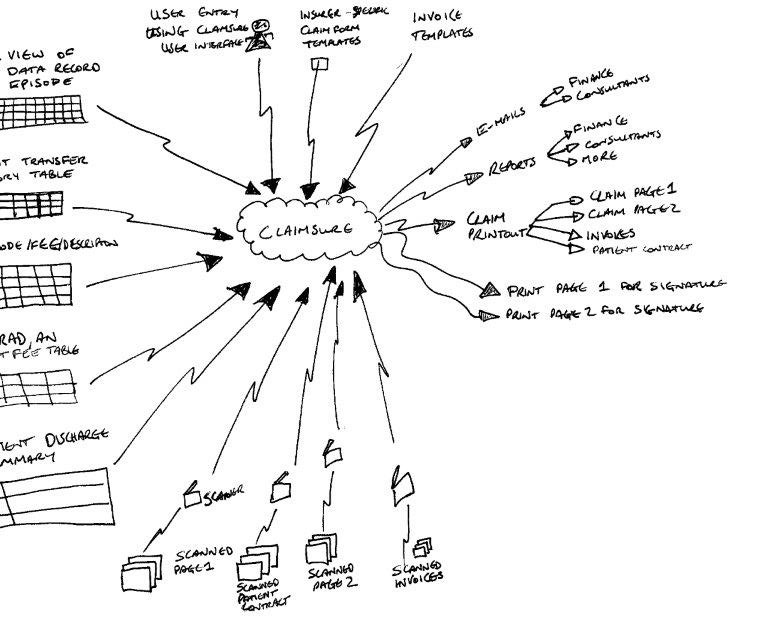 USER ENTRY
USING CLAIMSURE
USER INTERFACE
INSURER-SPECIFIC
CLAIM FORM
TEMPLATES
INVOICE
TEMPLATES
VIEW OF
DATA RECORD
EPISODE
T TRANSFER
ORY TABLE
ODE/FEE/DESCRIPTION
RAD, AN
T FEE TABLE
IENT DISCHARGE
MMARY
CLAIMSURE
E-MAILS
FINANCE
CONSULTANTS
REPORTS
FINANCE
CONSULTANTS
MORE
CLAIM
PRINTOUT
CLAIM PAGE 1
CLAIM PAGE 2
INVOICES
PATIENT CONTRACT
PRINT PAGE 1 FOR SIGNATURE
PRINT PAGE 2 FOR SIGNATURE
SCANNER
SCANNED
PAGE 1
SCANNED
PATIENT
CONTRACT
SCANNED
PAGE 2
SCANNED
INVOICES